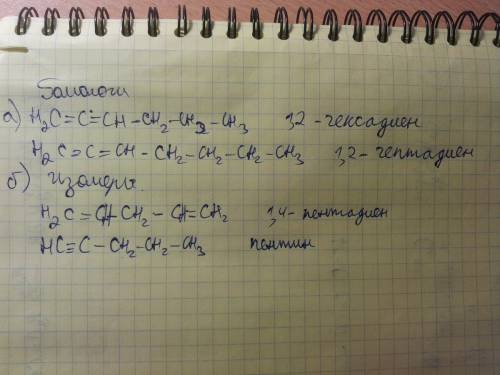 Гомологи
а) H₂C=C=CH-CH₂-CH₂-CH₃ 1,2-гексадиен
H₂C=C=CH-CH₂-CH₂-CH₂-CH₃ 1,2-гептадиен
б) изомеры.
H₂C=CH CH₂-CH=CH₂ 1,4-пентадиен
HC≡C-CH₂-CH₂-CH₃ пентин